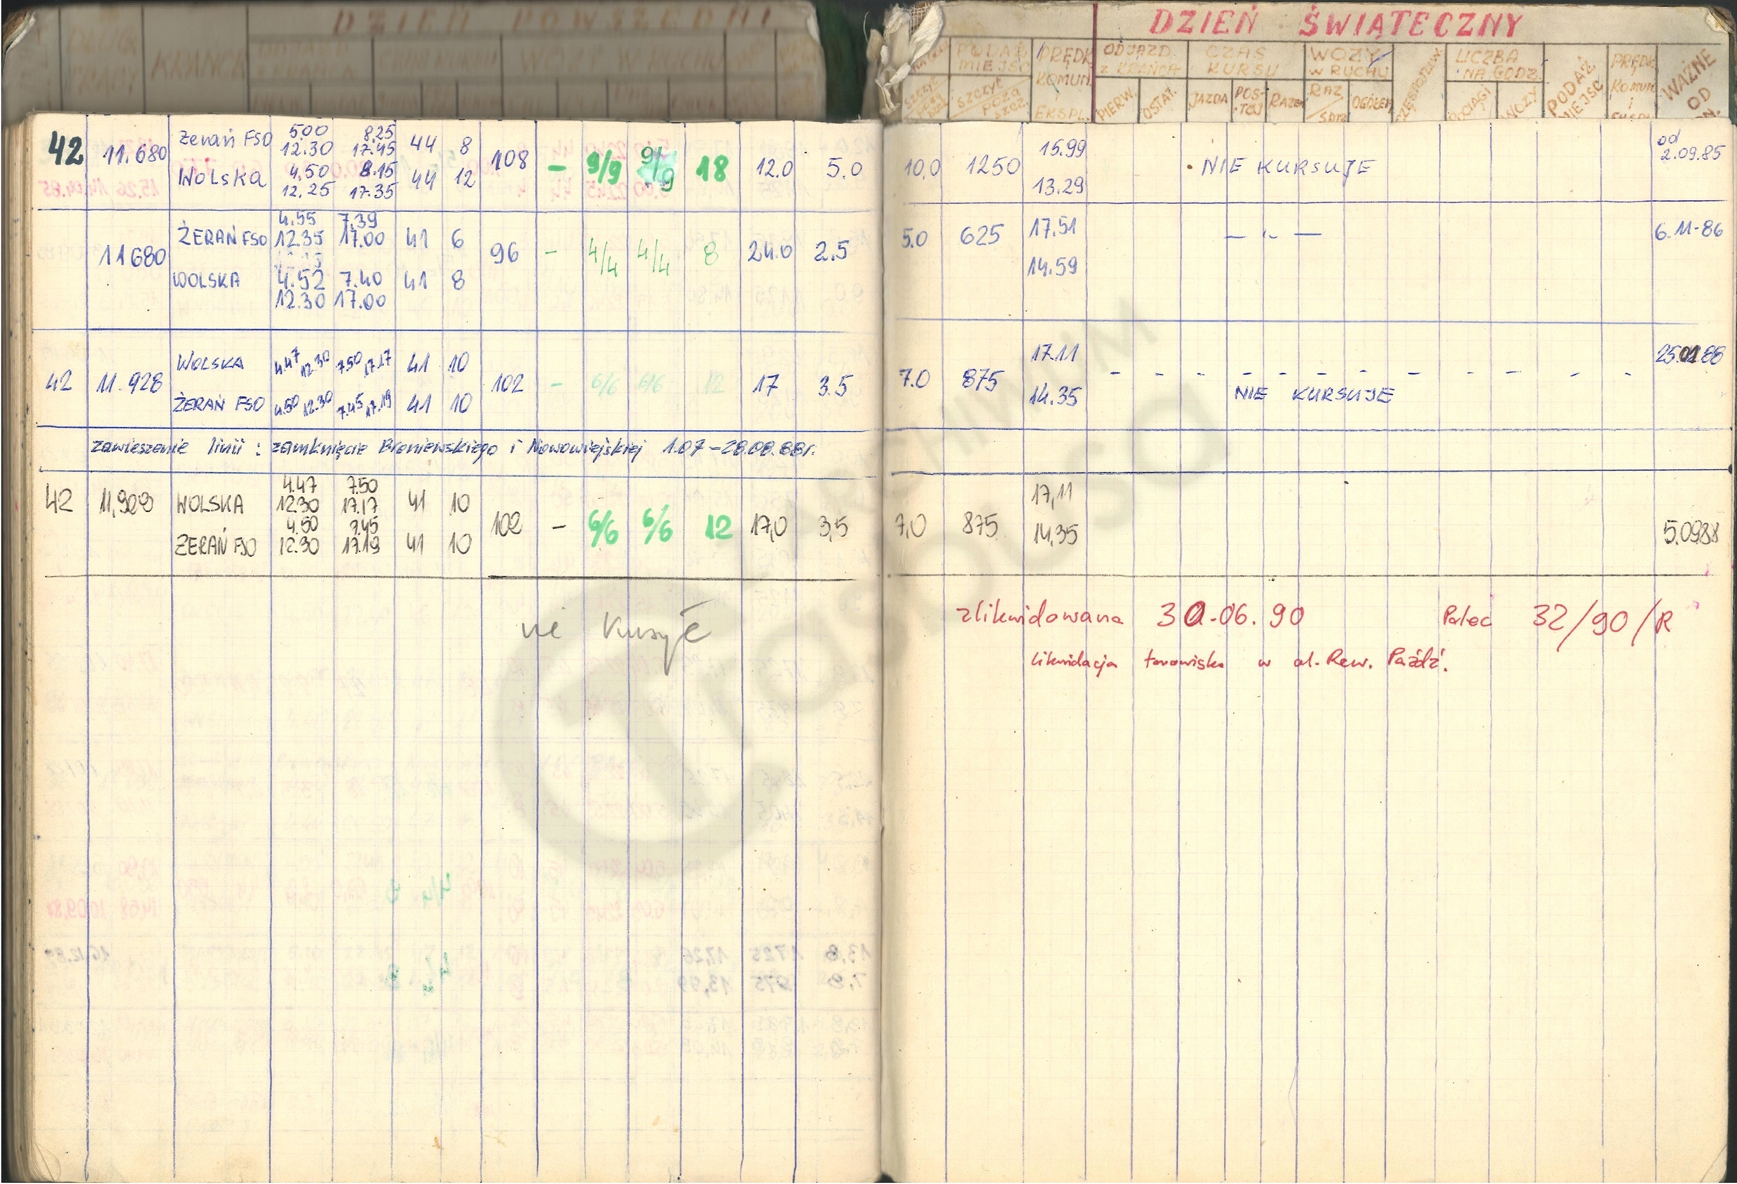 DZIEŃ POWSZEDNI
KRAŃCE
DZIEŃ ŚWIĄTECZNY
PODAŻ MIEJSC
PRĘDK. KOMUN. EKSPL.
ODJAZD. z KRAŃCA
CZAS KURSU
WOZY W RUCHU
LICZBA NA GODZ.
PODAŻ MIEJSC
PRĘDK KOMUN i
WAŻNE OD
PIERW. OSTAT. JAZDA POSTÓJ RAZEM RAZ OGÓŁEM WOZY
42 11.680 Żerań FSO 5.00 8.25 44 8
12.30 17.45
108 - 9/9 9/9 18 12.0 5.0 10,0 1250 15.99 NIE KURSUJE od 2.09.85
WOLSKA 4.50 8.15 44 12
12.25 17.35
13.29
11680 ŻERAŃ FSO 4.55 7.39 41 6
12.35 17.00
96 - 4/4 4/4 8 24.0 2.5 5.0 625 17.51 — „ — 6.11.86
WOLSKA 4.52 7.40 41 8
12.30 17.00
14.59
42 11.928 WOLSKA 4.47 12.30 7.50 17.17 41 10
102 - 6/6 6/6 12 17 3.5 7.0 875 17.11 25.01.88
ŻERAŃ FSO 4.50 12.30 7.45 17.19 41 10
14.35 NIE KURSUJE
zawieszenie linii : zamknięcie Broniewskiego i Nowowiejskiej 1.07 - 28.08.88r.
42 11,929 WOLSKA 4.47 7.50 41 10
12.30 17.17
102 - 6/6 6/6 12 17,0 3,5 7,0 875 17,11 5.09.88
ŻERAŃ FSO 4.50 7.45 41 10
12.30 17.19
14,35
nie kursuje
zlikwidowana 30.06.90 Polec 32/90/R
likwidacja torowiska w al. Rew. Paźdź.
ARCHIWUM
Trasbusa